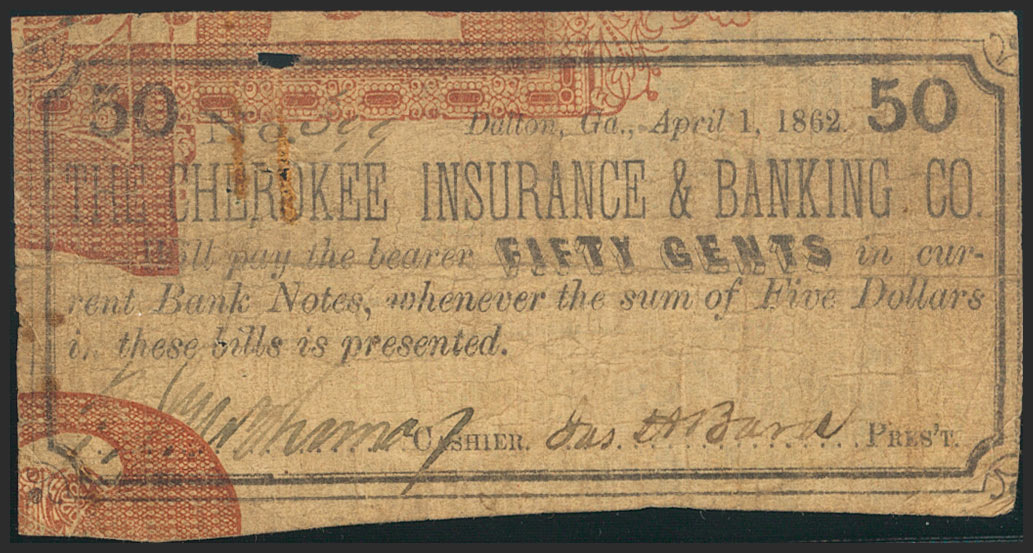 50 No 599 Dalton, Ga., April 1, 1862. 50
THE CHEROKEE INSURANCE & BANKING CO.
Will pay the bearer FIFTY CENTS in cur-
rent Bank Notes, whenever the sum of Five Dollars
in these bills is presented.
CASHIER. Jas. PRES'T.